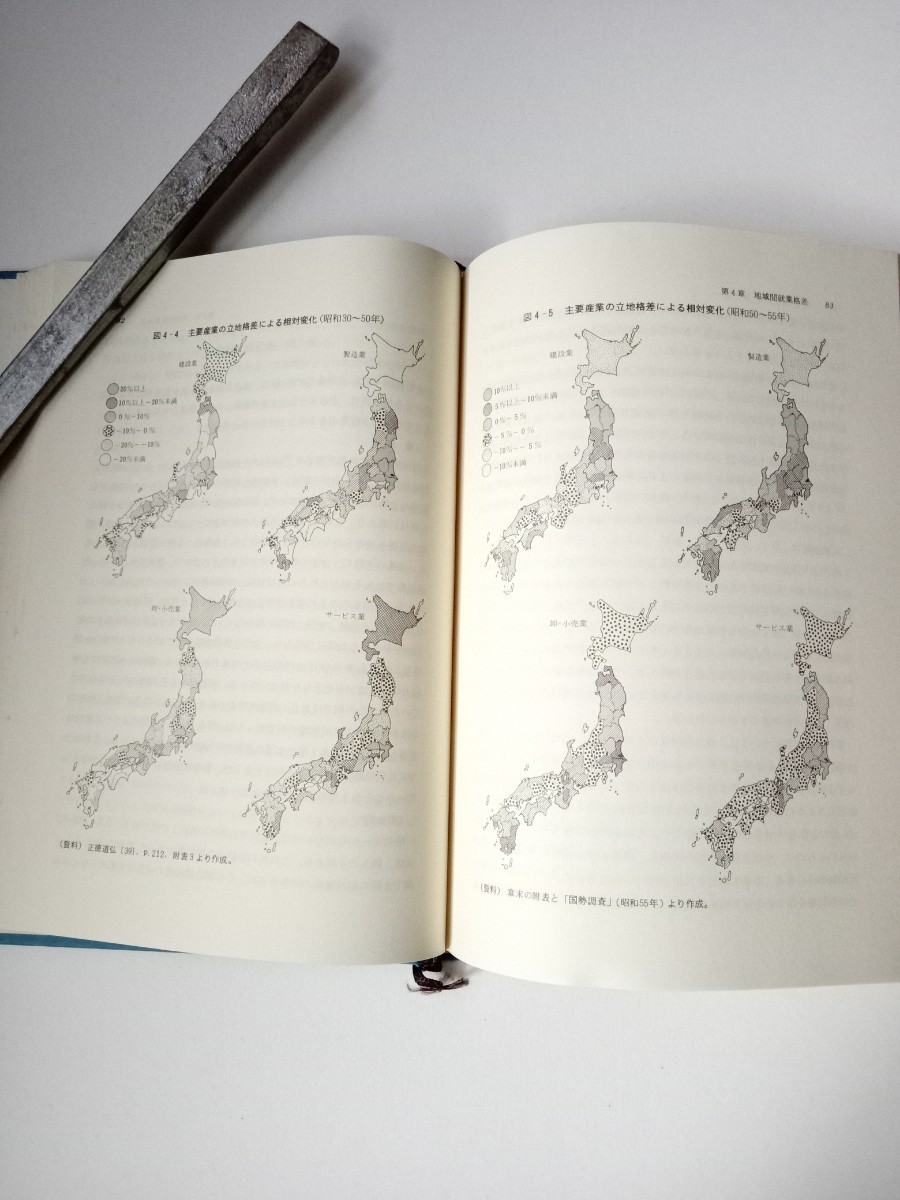 2
図4-4 主要産業の立地格差による相対変化(昭和30〜50年)
建設業
製造業
20%以上
10%以上〜20%未満
0%〜10%
-10%〜0%
-20%〜-10%
-20%未満
卸・小売業
サービス業
(資料) 正徳道弘〔39〕, p.212, 附表3より作成。
第4章 地域間就業格差 83
図4-5 主要産業の立地格差による相対変化(昭和50〜55年)
建設業
製造業
10%以上
5%以上〜10%未満
0%〜5%
-5%〜0%
-10%〜-5%
-10%未満
卸・小売業
サービス業
(資料) 章末の附表と「国勢調査」(昭和55年)より作成。